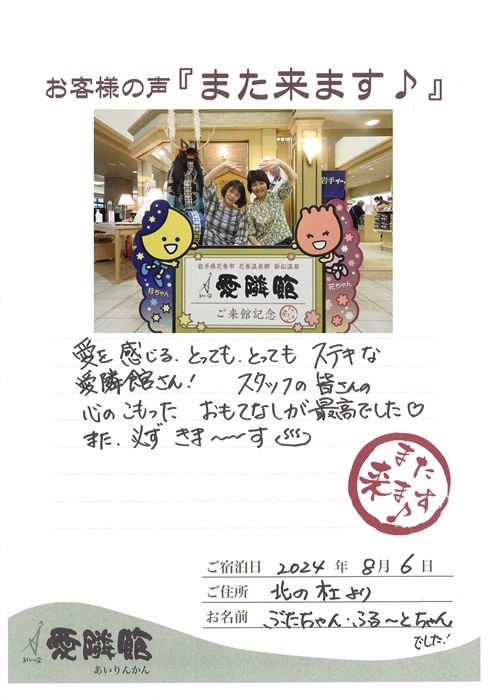 お客様の声『また来ます♪』
岩手イー
岩手県花巻市 花巻温泉郷 新鉛温泉
愛隣館
ご来館記念
月ちゃん
花ちゃん
愛を感じる、とっても、とっても ステキな
愛隣館さん! スタッフの皆さんの
心のこもった おもてなしが最高でした♡
また、必ず きま〜〜す♨
また
来ます♪
ご宿泊日 2024年 8月 6日
ご住所 北の杜より
お名前 ぶたちゃん・ふる〜とちゃん
でした!
愛隣館
あいりんかん